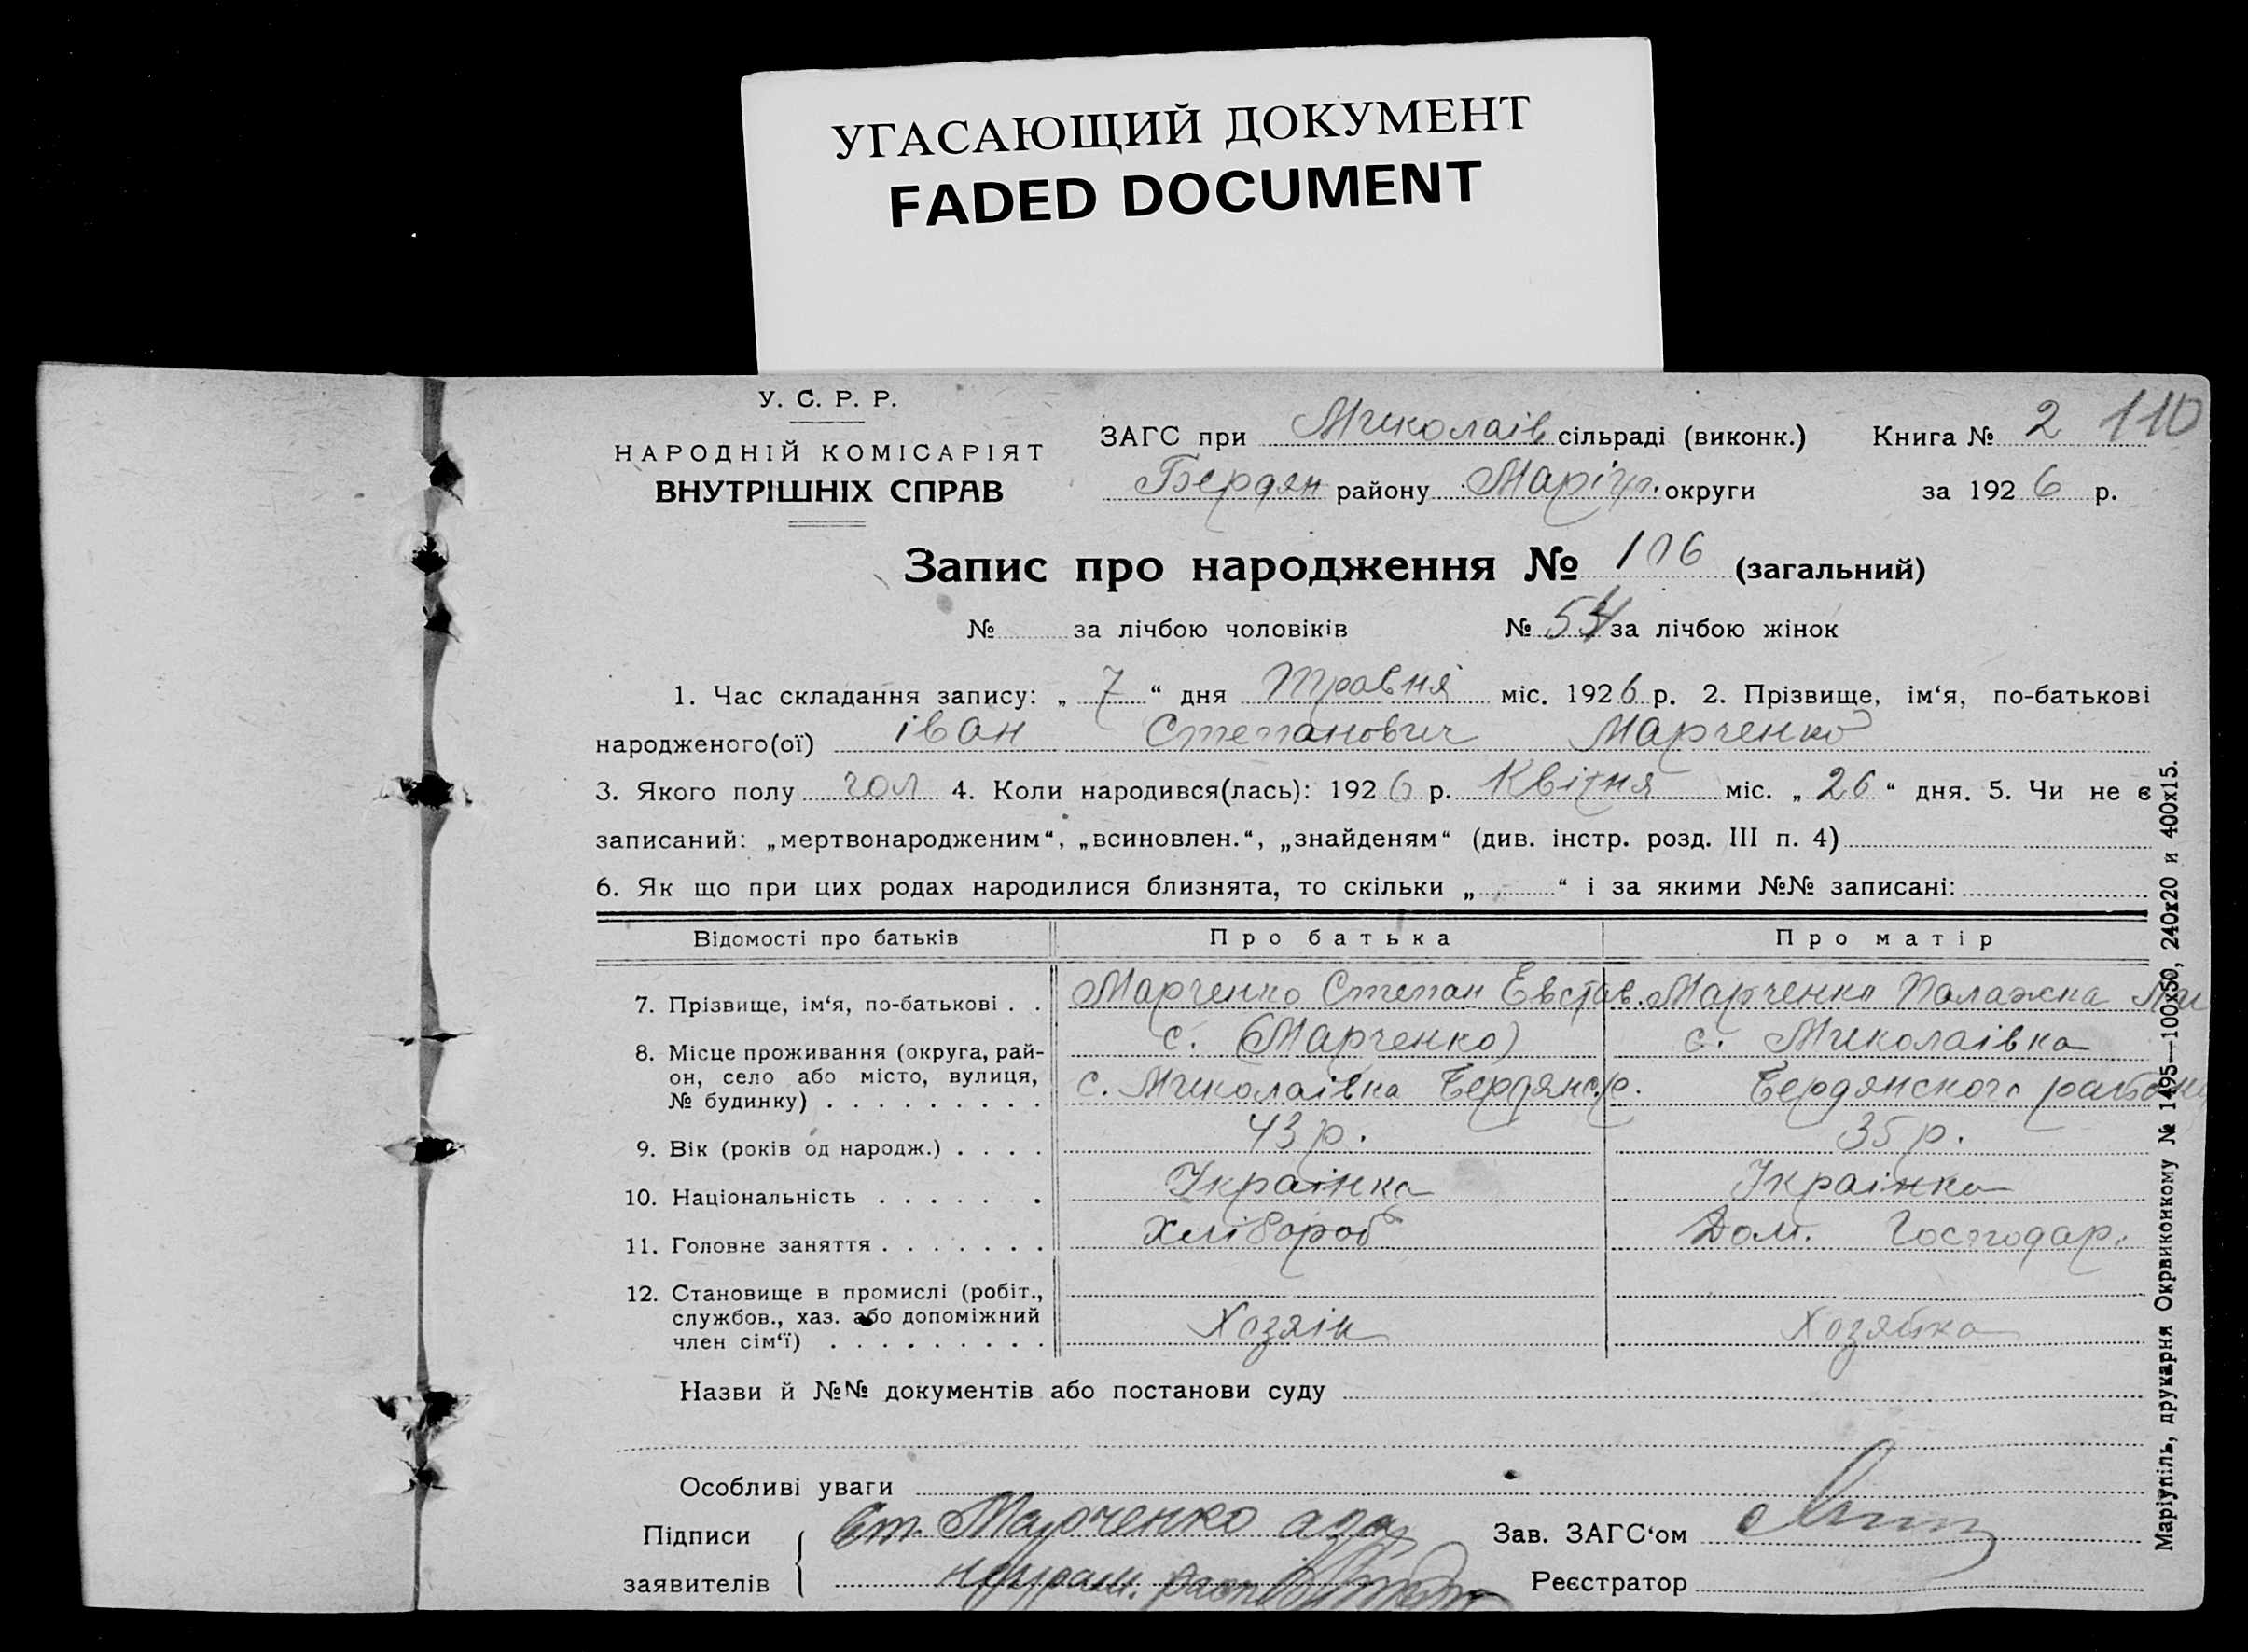 УГАСАЮЩИЙ ДОКУМЕНТ
FADED DOCUMENT
У. С. Р. Р.
НАРОДНІЙ КОМІСАРІЯТ
ВНУТРІШНІХ СПРАВ
ЗАГС при Миколаів сільраді (виконк.) Книга № 2 110
Бердян району Маріуп. округи за 1926 р.
Запис про народження № 106 (загальний)
№ за лічбою чоловіків № 54 за лічбою жінок
1. Час складання запису: „ 7 “ дня травня міс. 1926 р. 2. Прізвище, ім‘я, по-батькові
народженого(ої) іван Степанович Марченко
3. Якого полу чол 4. Коли народився(лась): 1926 р. Квітня міс. „ 26 “ дня. 5. Чи не є
записаний: „мертвонародженим“, „всиновлен.“, „знайденям“ (див. інстр. розд. III п. 4)
6. Як що при цих родах народилися близнята, то скільки „ “ і за якими №№ записані:
Відомості про батьків Про батька Про матір
7. Прізвище, ім‘я, по-батькові . . Марченко Степан Евстав. Марченко Палажка
8. Місце проживання (округа, рай-
он, село або місто, вулиця,
№ будинку) . . . . . . . . .
с. (Марченко) с. Миколаівка
с. Миколаівка Бердянс. р. Бердянского района
9. Вік (років од народж.) . . . . 43 р. 35 р.
10. Національність . . . . . . . Украінка Украінка
11. Головне заняття . . . . . . . Хлібороб Дом. Господар.
12. Становище в промислі (робіт.,
службов., хаз. або допоміжний
член сім‘ї) . . . . . . . . . Хозяін Хозяйка
Назви й №№ документів або постанови суду
Особливі уваги
Підписи Ст. Марченко а за
заявителів неграм. расп.
Зав. ЗАГС‘ом
Реєстратор
Маріупіль, друкарня Окрвиконкому № 1495—100х50, 240х20 и 400х15.